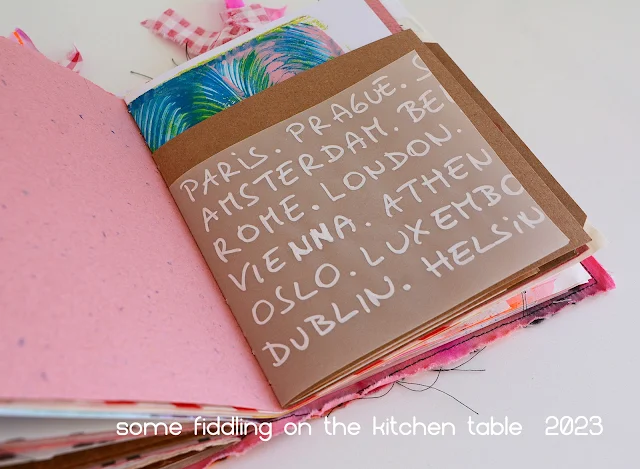 PARiS. PRAGUE. S
AMSTERDAM. BE
ROME. LONDON.
VIENNA. ATHEN
OSLO. LUXEMBO
DUBLIN. HELSiN
some fiddling on the kitchen table 2023